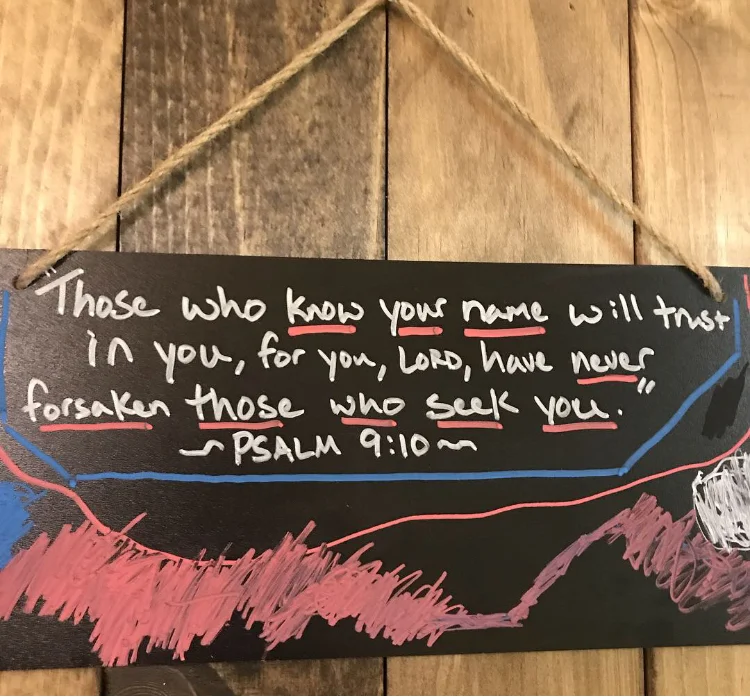 "Those who know your name will trust
in you, for you, LORD, have never
forsaken those who seek you."
~PSALM 9:10~